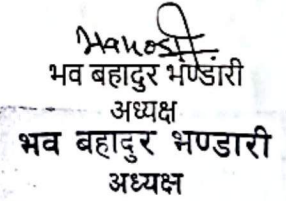 भव बहादुर भण्डारी
अध्यक्ष
भव बहादुर भण्डारी
अध्यक्ष